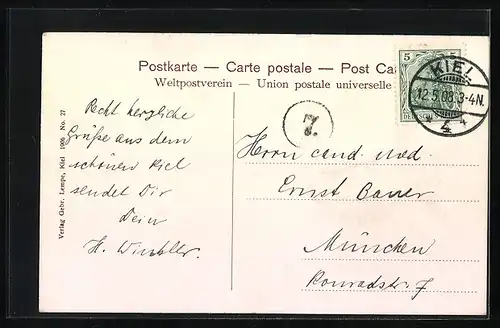 Postkarte — Carte postale — Post Ca
Weltpostverein — Union postale universelle
5
KIEL
12.5.08.3-4N.
* 4 *
DEUTSCHES
7.
Recht herzliche
Grüße aus dem
schönen Kiel
sendet Dir
Dein
H. Winkler.
Herrn cand. med.
Ernst Bauer
München
Konradstr. 7
Verlag Gebr. Lempe, Kiel 1906 No. 27